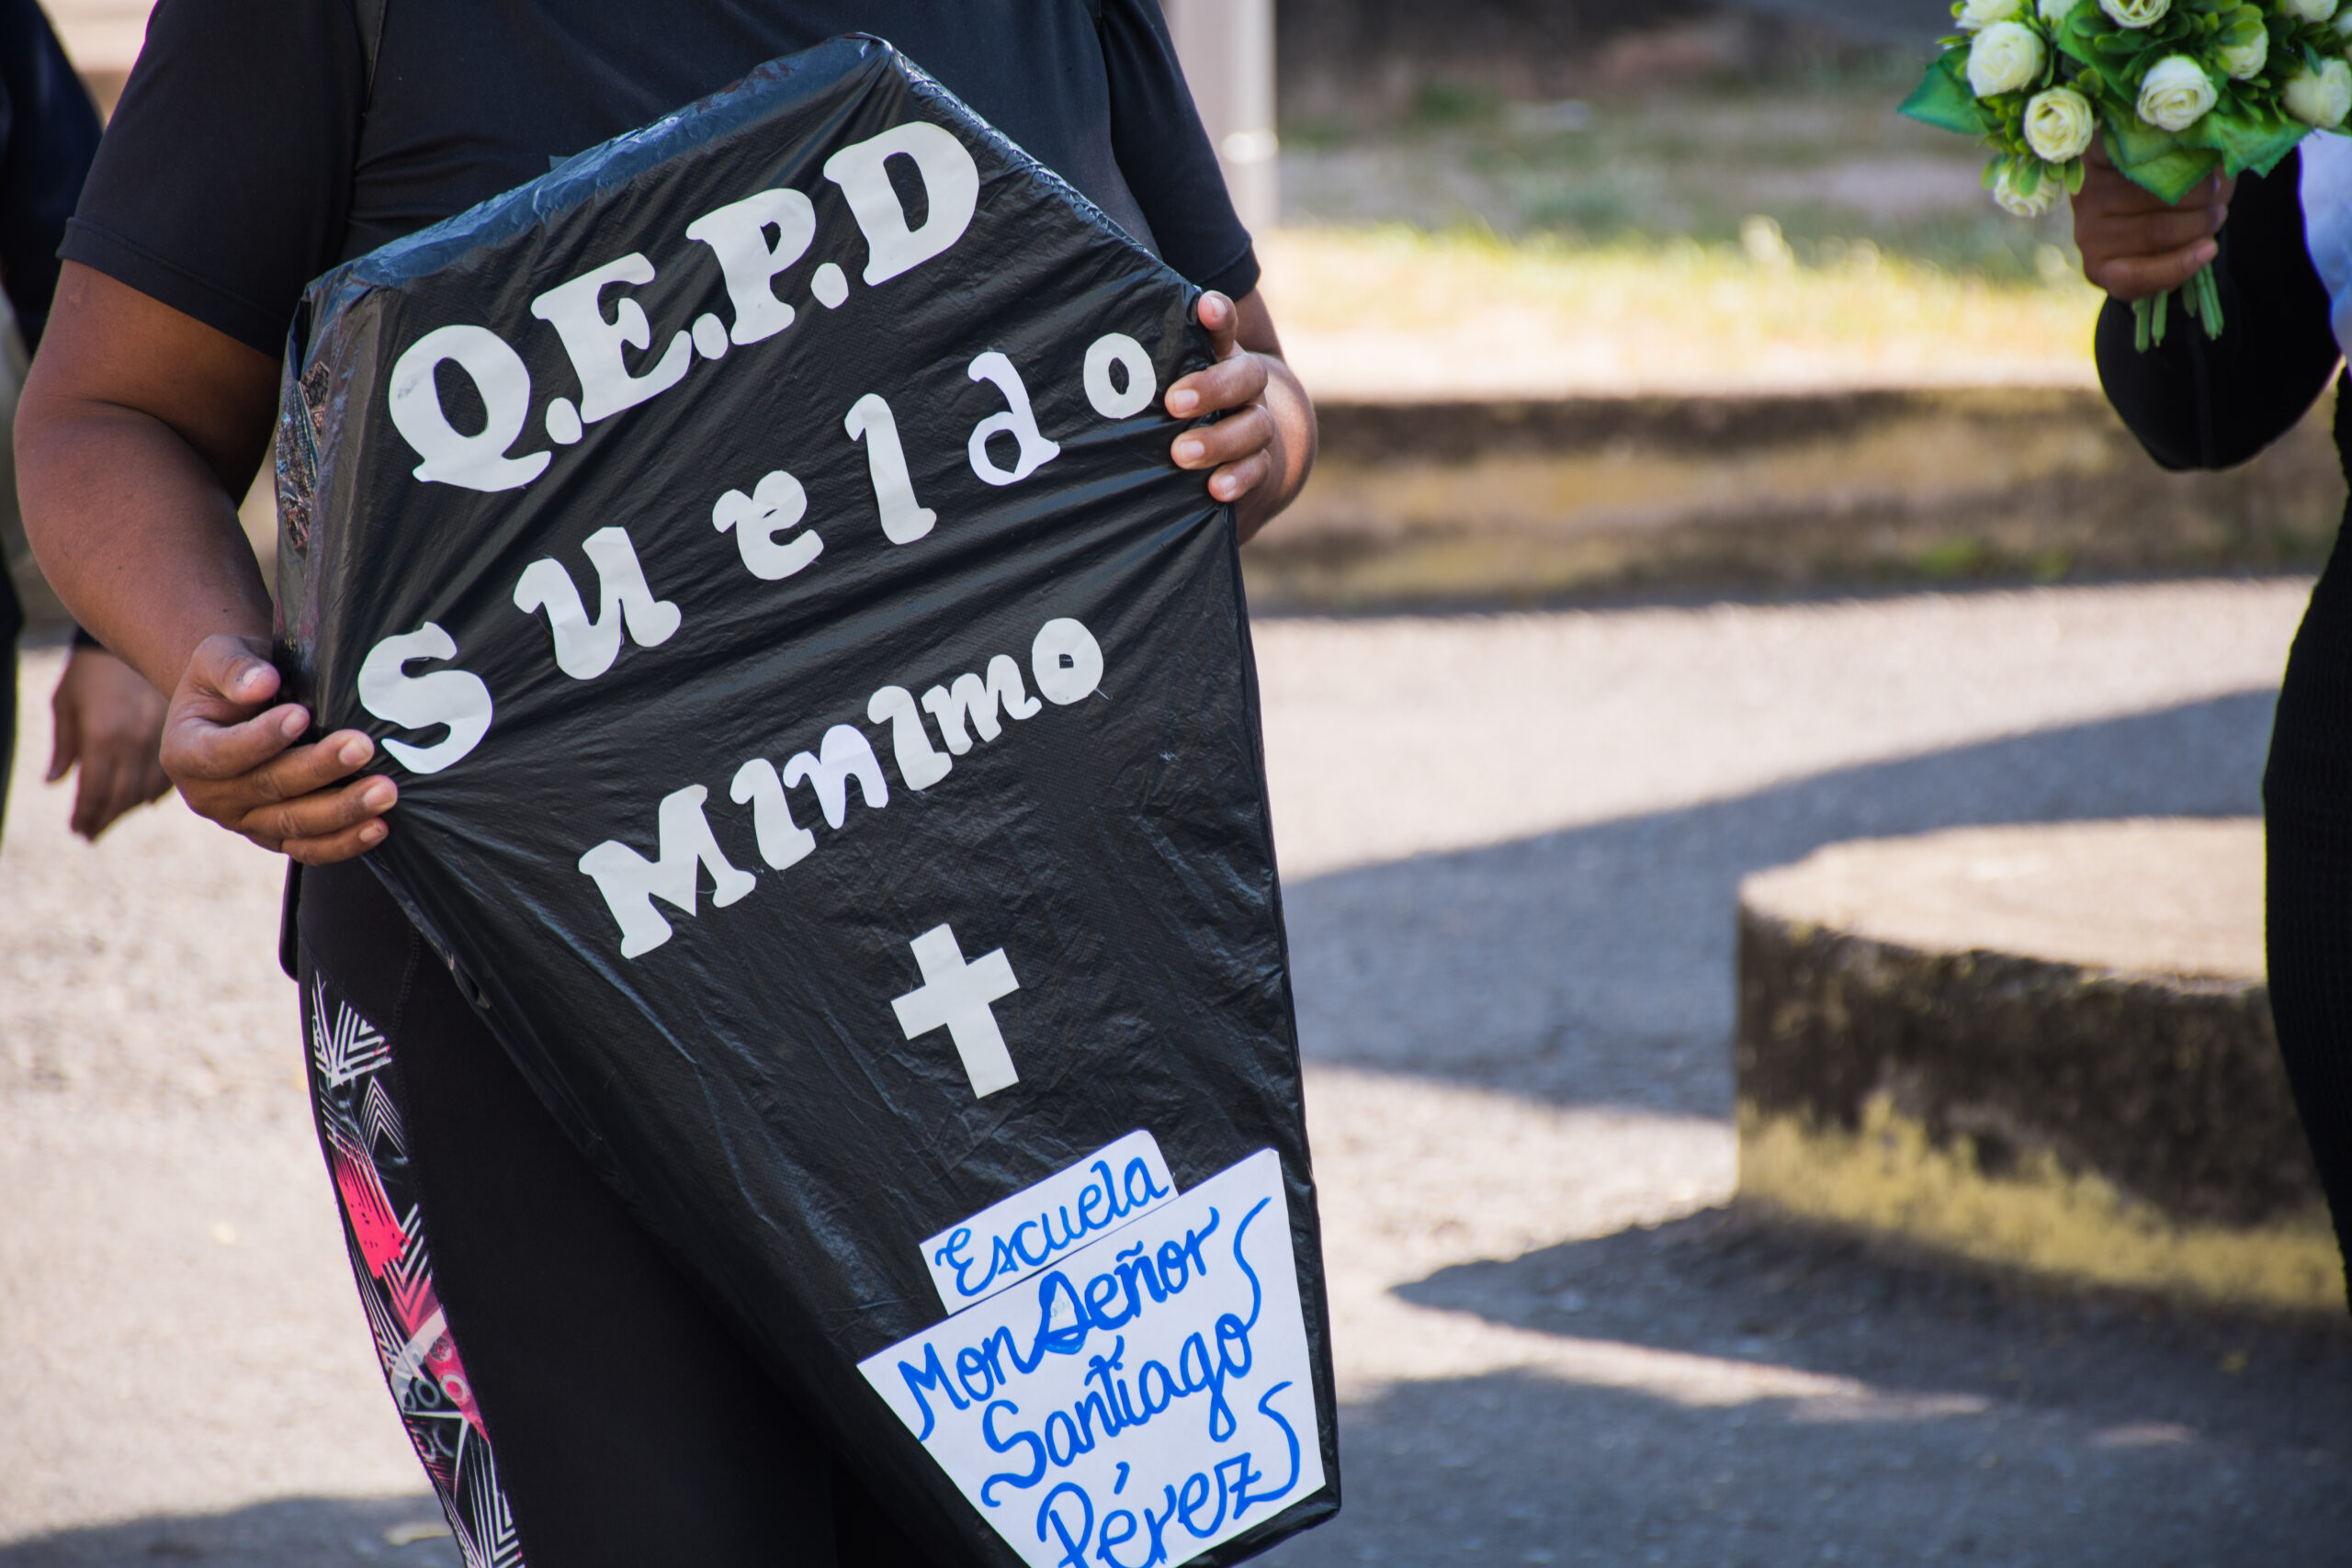 Q.E.P.D
Sueldo
Minimo
Escuela
MonSeñor
Santiago
Pérez